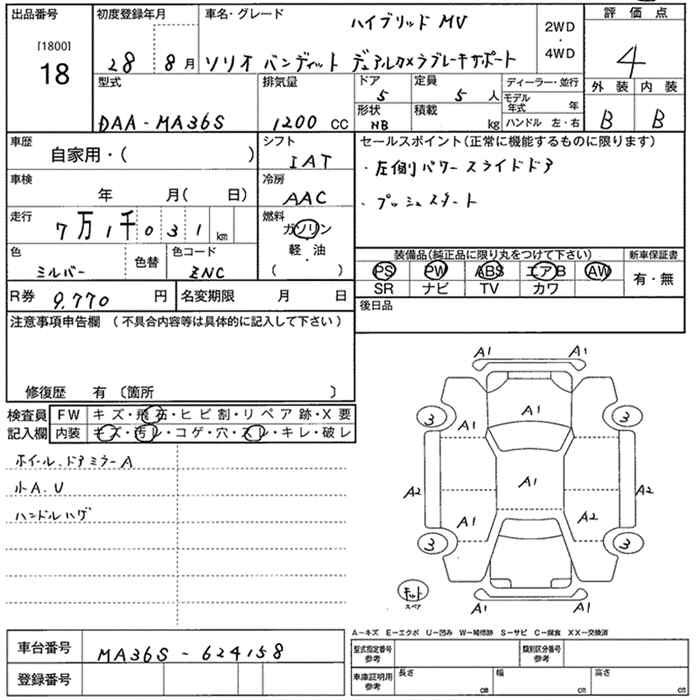 出品番号
[1800]
18
初度登録年月
28 8月
車名・グレード
ハイブリッド MV
ソリオ バンディット デュアルカメラブレーキサポート
2WD
・
4WD
評価点
4
外装 内装
B B
型式
DAA-MA36S
排気量
1200 CC
ドア
5
定員
5 人
形状
HB
積載
kg
ディーラー・並行
モデル年式 年
ハンドル 左・右
車歴
自家用・( )
シフト
IAT
車検
年 月( 日)
冷房
AAC
走行
7万1千031 km
燃料
ガソリン
軽・油
( ・ )
色
シルバー
色替
色コード
ZNC
R券
9,770 円
名変期限 月 日
セールスポイント(正常に機能するものに限ります)
・圧倒パワースライドドア
・プッシュスタート
装備品(純正品に限り丸をつけて下さい)
PS PW ABS エアB AW
SR ナビ TV カワ
新車保証書
有・無
後日品
注意事項申告欄 (不具合内容等は具体的に記入して下さい)
修復歴 有 〔箇所 〕
検査員
記入欄
FW キズ・飛石・ヒビ割・リペア跡・X要
内装 キズ・汚レ・コゲ・穴・スレ・キレ・破レ
ホイール、ドアミラーA
小A、U
ハンドルハゲ
A1 A1
A1
3 3
A1 A1
A2 A1 A2
A1 A2
3 3
キット
スペア
A1 A1
A1
A-キズ E-エクボ U-凹み W-補修跡 S-サビ C-腐食 XX-交換済
車台番号
MA36S-624158
登録番号
型式指定番号
参考
類別区分番号
参考
車庫証明用
参考
長さ cm
幅 cm
高さ cm